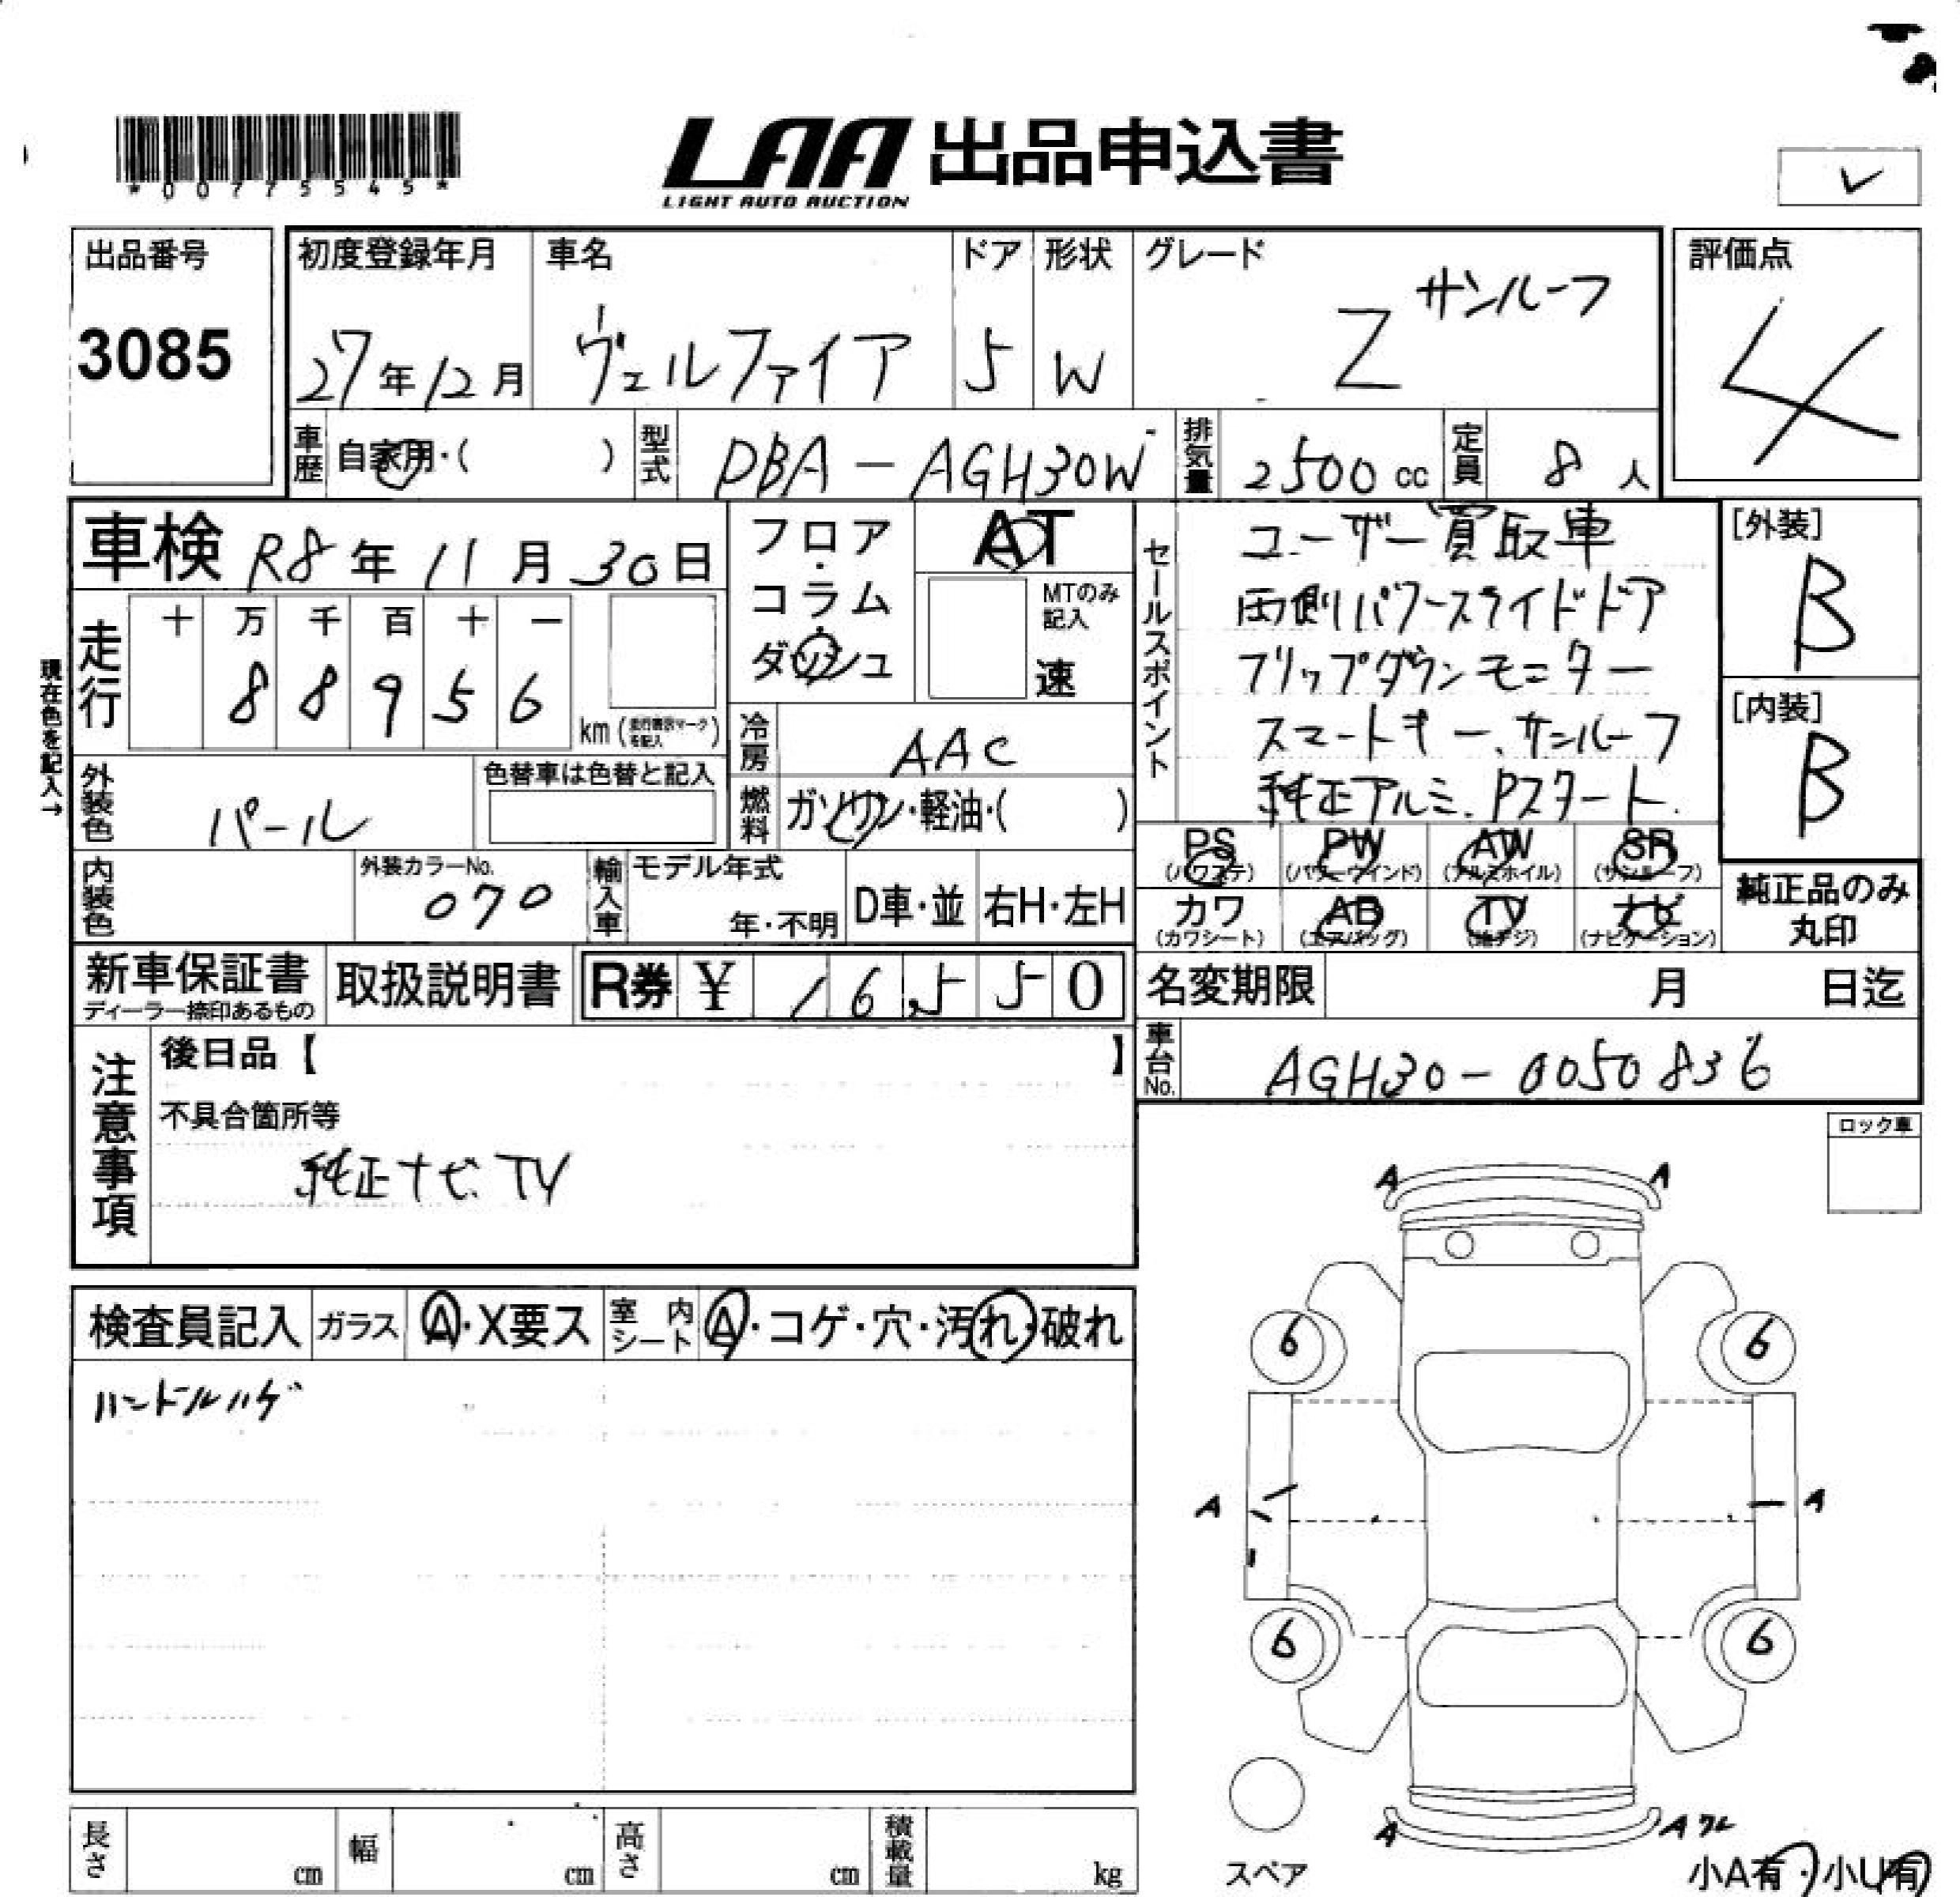 *00775545*
LAA 出品申込書
LIGHT AUTO AUCTION
レ
出品番号
3085
初度登録年月
27年12月
車名
ヴェルファイア
ドア
5
形状
W
グレード
Z サンルーフ
評価点
4
車歴 自家用・( )
型式 DBA-AGH30W
排気量 2500cc
定員 8人
車検 R8年11月30日
フロア・コラム・ダッシュ
AT
MTのみ記入
速
走行
十 万 千 百 十 一
8 8 9 5 6
km(走行表示マークを記入)
現在色を記入→
冷房 AAC
外装色 パール
色替車は色替と記入
燃料 ガソリン・軽油・( )
内装色
外装カラーNo.
070
輸入車 モデル年式
年・不明
D車・並
右H・左H
セールスポイント
ユーザー買取車
両側パワースライドドア
フリップダウンモニター
スマートキー、サンルーフ
純正アルミ、Pスタート
[外装]
B
[内装]
B
PS (パワステ)
PW (パワーウインド)
AW (アルミホイル)
SR (サンルーフ)
カワ (カワシート)
AB (エアバッグ)
TV (地デジ)
ナビ (ナビゲーション)
純正品のみ
丸印
新車保証書
ディーラー捺印あるもの
取扱説明書
R券 ¥ 16,550
名変期限 月 日迄
車台No. AGH30-0050836
注意事項
後日品【 】
不具合箇所等
純正ナビ、TV
ロック車
検査員記入
ガラス A・X要ス
室内シート A・コゲ・穴・汚れ・破れ
ハンドルハゲ
A A
6 6
A A
6 6
A Aワレ
スペア
小A有・小U有
長さ cm
幅 cm
高さ cm
積載量 kg